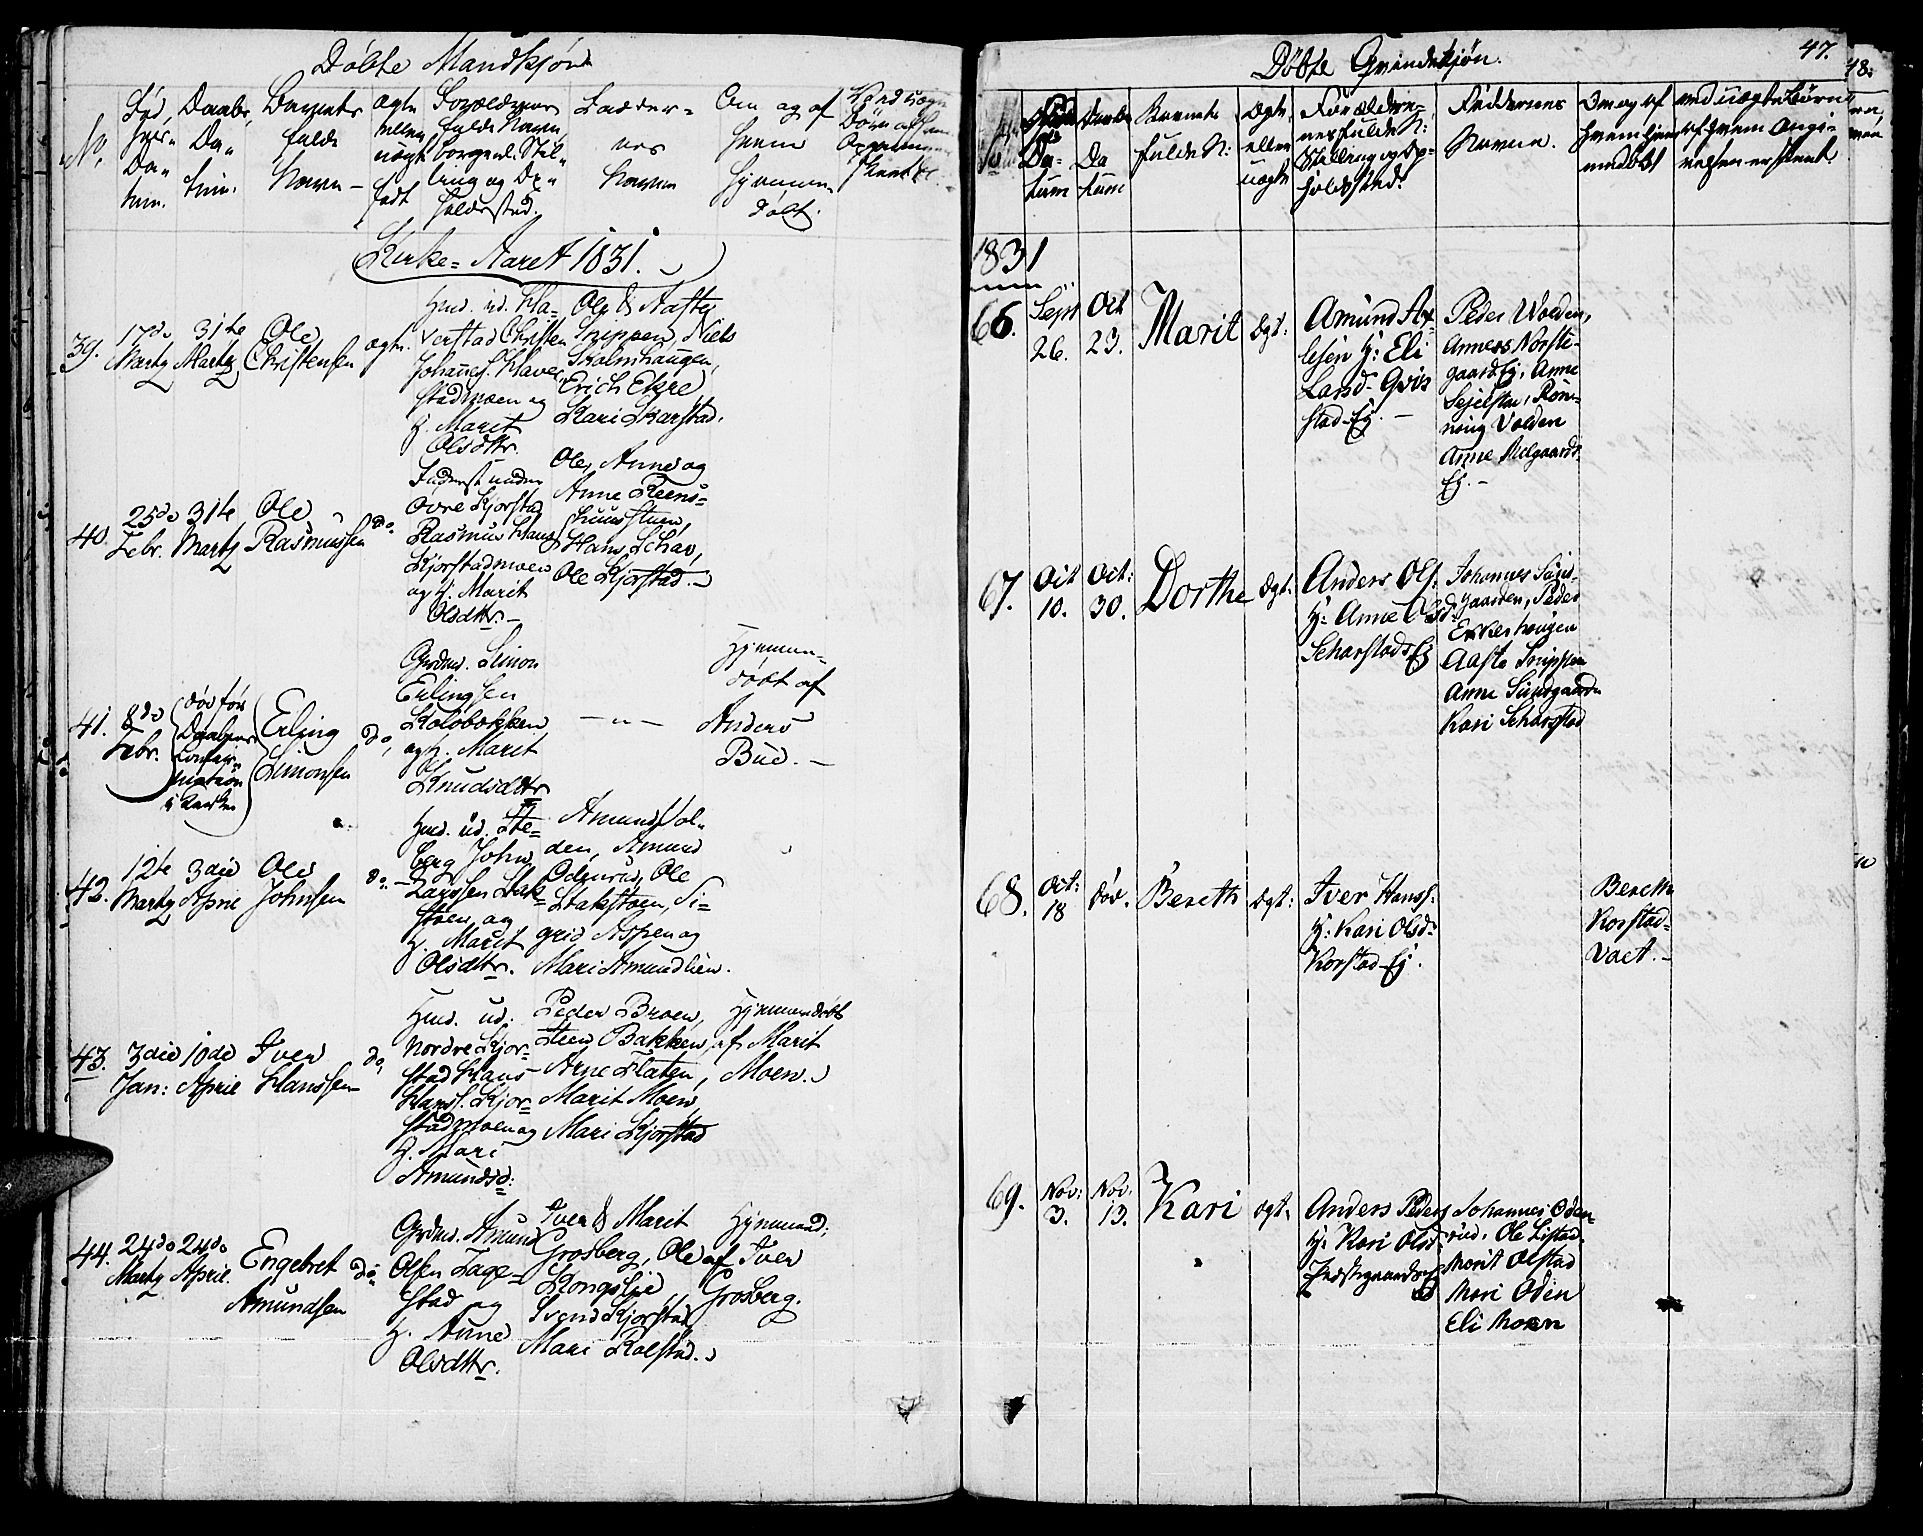 Döbte Mandkjön
No.
Fød-
Da-
tum.
Daabs-
Da-
tum.
Barnets
fulde
Navn
ægte
eller
uægte
født
Forældrenes
fulde Navn,
borgerl. Stil-
ling og Op-
holdssted.
Fadder-
nes
Navne
Om og af
hvem
hjemme-
døbt.
Kirke-Aaret 1831.
39.
17de
Martz
31te
Martz
Ole
Christensen
ægte.
Huusm. ud. Kla-
verstad Christen
Johannes. Klaver
stadmoen og
H. Marit
Olsdttr.
Ole & Aaste
Snippen, Niels
Skalmhaugen,
Erich Ekre
Kari Skarstad.
40.
25de
Febr.
31te
Martz
Ole
Rasmussen
do.
Inderst under
Övre Kjorstad
Rasmus Hans
Kjorstadmoen
og H. Marit
Olsdttr.
Ole, Anne og
Anne
Hans
Ole Kjorstad.
41.
8de
Febr.
död för
Daabens
Confir-
mation
i Kirken
Erling
Simonsen
do.
Grdm. Simon
Erlingsen
Kolobakken
og H. Marit
Knudsdttr
— " —
Hjemme-
döbt af
Anders
Bue.
42.
12te
Martz
3die
April
Ole
Johnsen
do.
Huusm. ud. Ste-
berg John
Larssen Stak-
stoen, og
H. Marit
Olsdttr.
Amund Vol-
den, Amund
Odenrud, Ole
Stakstoen, Si-
grid Aspen og
Mari Amundlien.
43.
3die
Jan:
10de
April
Iver
Hanssen
do.
Huusm. ud.
Nordre Kjor-
stad Hans
Hans. Kjor-
stadmoen og
H. Mari
Amundsd:
Peder Broen,
Steen Bakken,
Arne Flaten,
Marit Moen
Mari Kjorstad
Hjemmedöbt
af Marit
Moen.
44.
24de
Martz
24de
April.
Engebret
Amundsen
do
Grdm. Amund
Olsen Lage-
stad og
H. Anne
Olsdttr.
Iver & Marit
Grosberg, Ole
Kongslie,
Svend Kjorstad
Mari Rolstad.
Hjemmed:
af Iver
Grosberg.
Döbte Qvindekjön.
47.
48.
No
Föds
Da-
tum
Daabs
Da
tum
Barnets
fulde N:
Ægte
eller
uægte
Forældre-
nes fulde N:
Stilling og Op-
holdssted:
Faddernes
Navne.
Om og af
hvem hjem-
medöbt
ved uægte Börn
af hvem Angi-
velsen er skeet
1831
66.
Sept
26.
Oct
23.
Marit
Ægt.
Amund Ax-
elsen H: Eli
Larsd. Qvis
stad-Ej.
Peder Wolden,
Anners Norste-
gaard Ej, Anne
Sejelstad, Rön-
noug Volden
Anne Nilsgaards
Ej.
67.
Oct
10.
Oct:
30.
Dorthe
Ægt.
Anders Ols.
H: Anne Olsd:
Scharstads Ej
Johannes Sönd-
gaarden, Peder
Eskerhougen
Aaste Snippen
Anne Sundgaarden
Kari Scharstad
68.
Oct:
18
död.
Bereth
Ægt:
Iver Hanss:
H: Kari Olsd:
Korstad-Ej.
Bereth
Korstad-
vaet.
69.
Nov:
3.
Nov:
13.
Kari
Ægt.
Anders Peders
H: Kari Olsd
Johannes Oden-
rud, Ole Listad
Morit Olstad
Mari Oden
Eli Moen